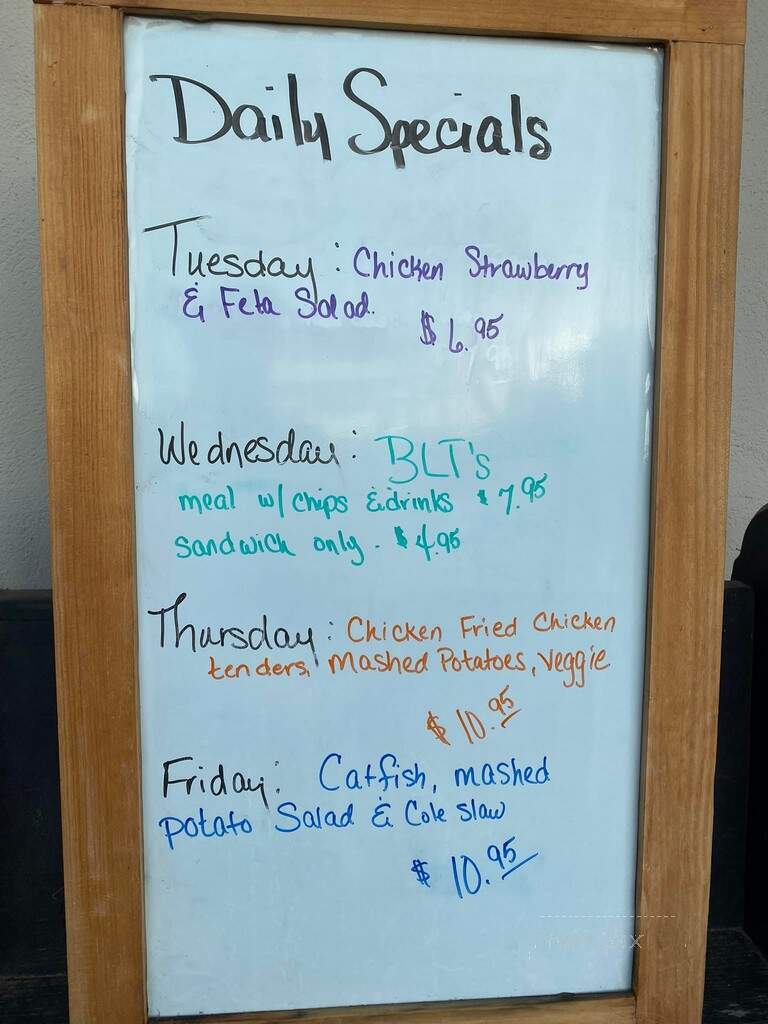 Daily Specials
Tuesday: Chicken Strawberry
& Feta Salad.
$6.95
Wednesday: BLT's
meal w/ chips & drinks $7.95
sandwich only. $4.95
Thursday: Chicken Fried Chicken
tenders, Mashed Potatoes, veggie
$10.95
Friday: Catfish, mashed
potato Salad & Cole Slaw
$10.95